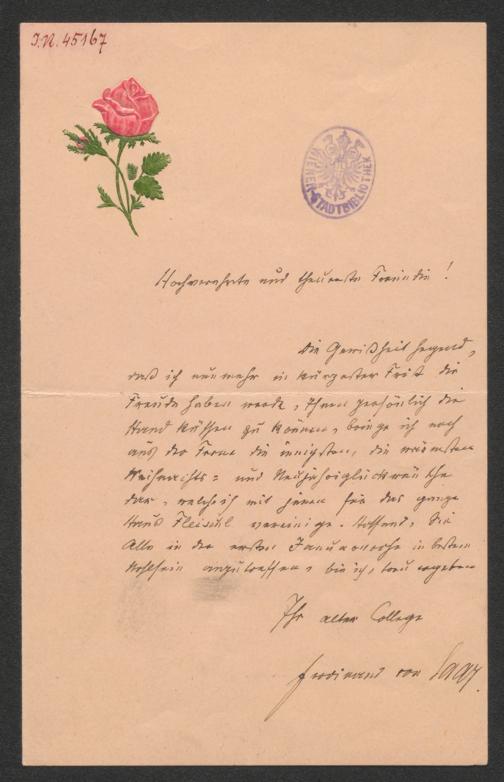 I.N. 45167
WIENER-STADTBIBLIOTHEK
Hochverehrte und theuerste Freundin!
Die Gewißheit hegend,
daß ich nunmehr in kürzester Frist die
Freude haben werde, Ihnen persönlich die
Hand küssen zu können, bringe ich noch
aus der Ferne die innigsten, die wärmsten
Weihnachts- und Neujahrsglückwünsche
dar, welche ich mit jenen für das ganze
Haus Fleischl vereinige. Hoffend, Sie
Alle in der ersten Januarwoche in bestem
Wohlsein anzutreffen, bin ich, treu ergeben
Ihr alter College
Ferdinand von Saar.